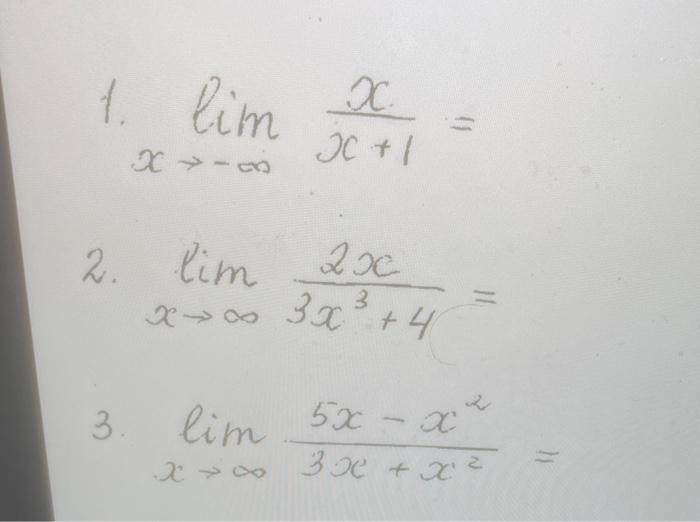 1. lim x→-∞ x/(x+1) =
2. lim x→∞ 2x/(3x³+4) =
3. lim x→∞ (5x-x²)/(3x+x²) =